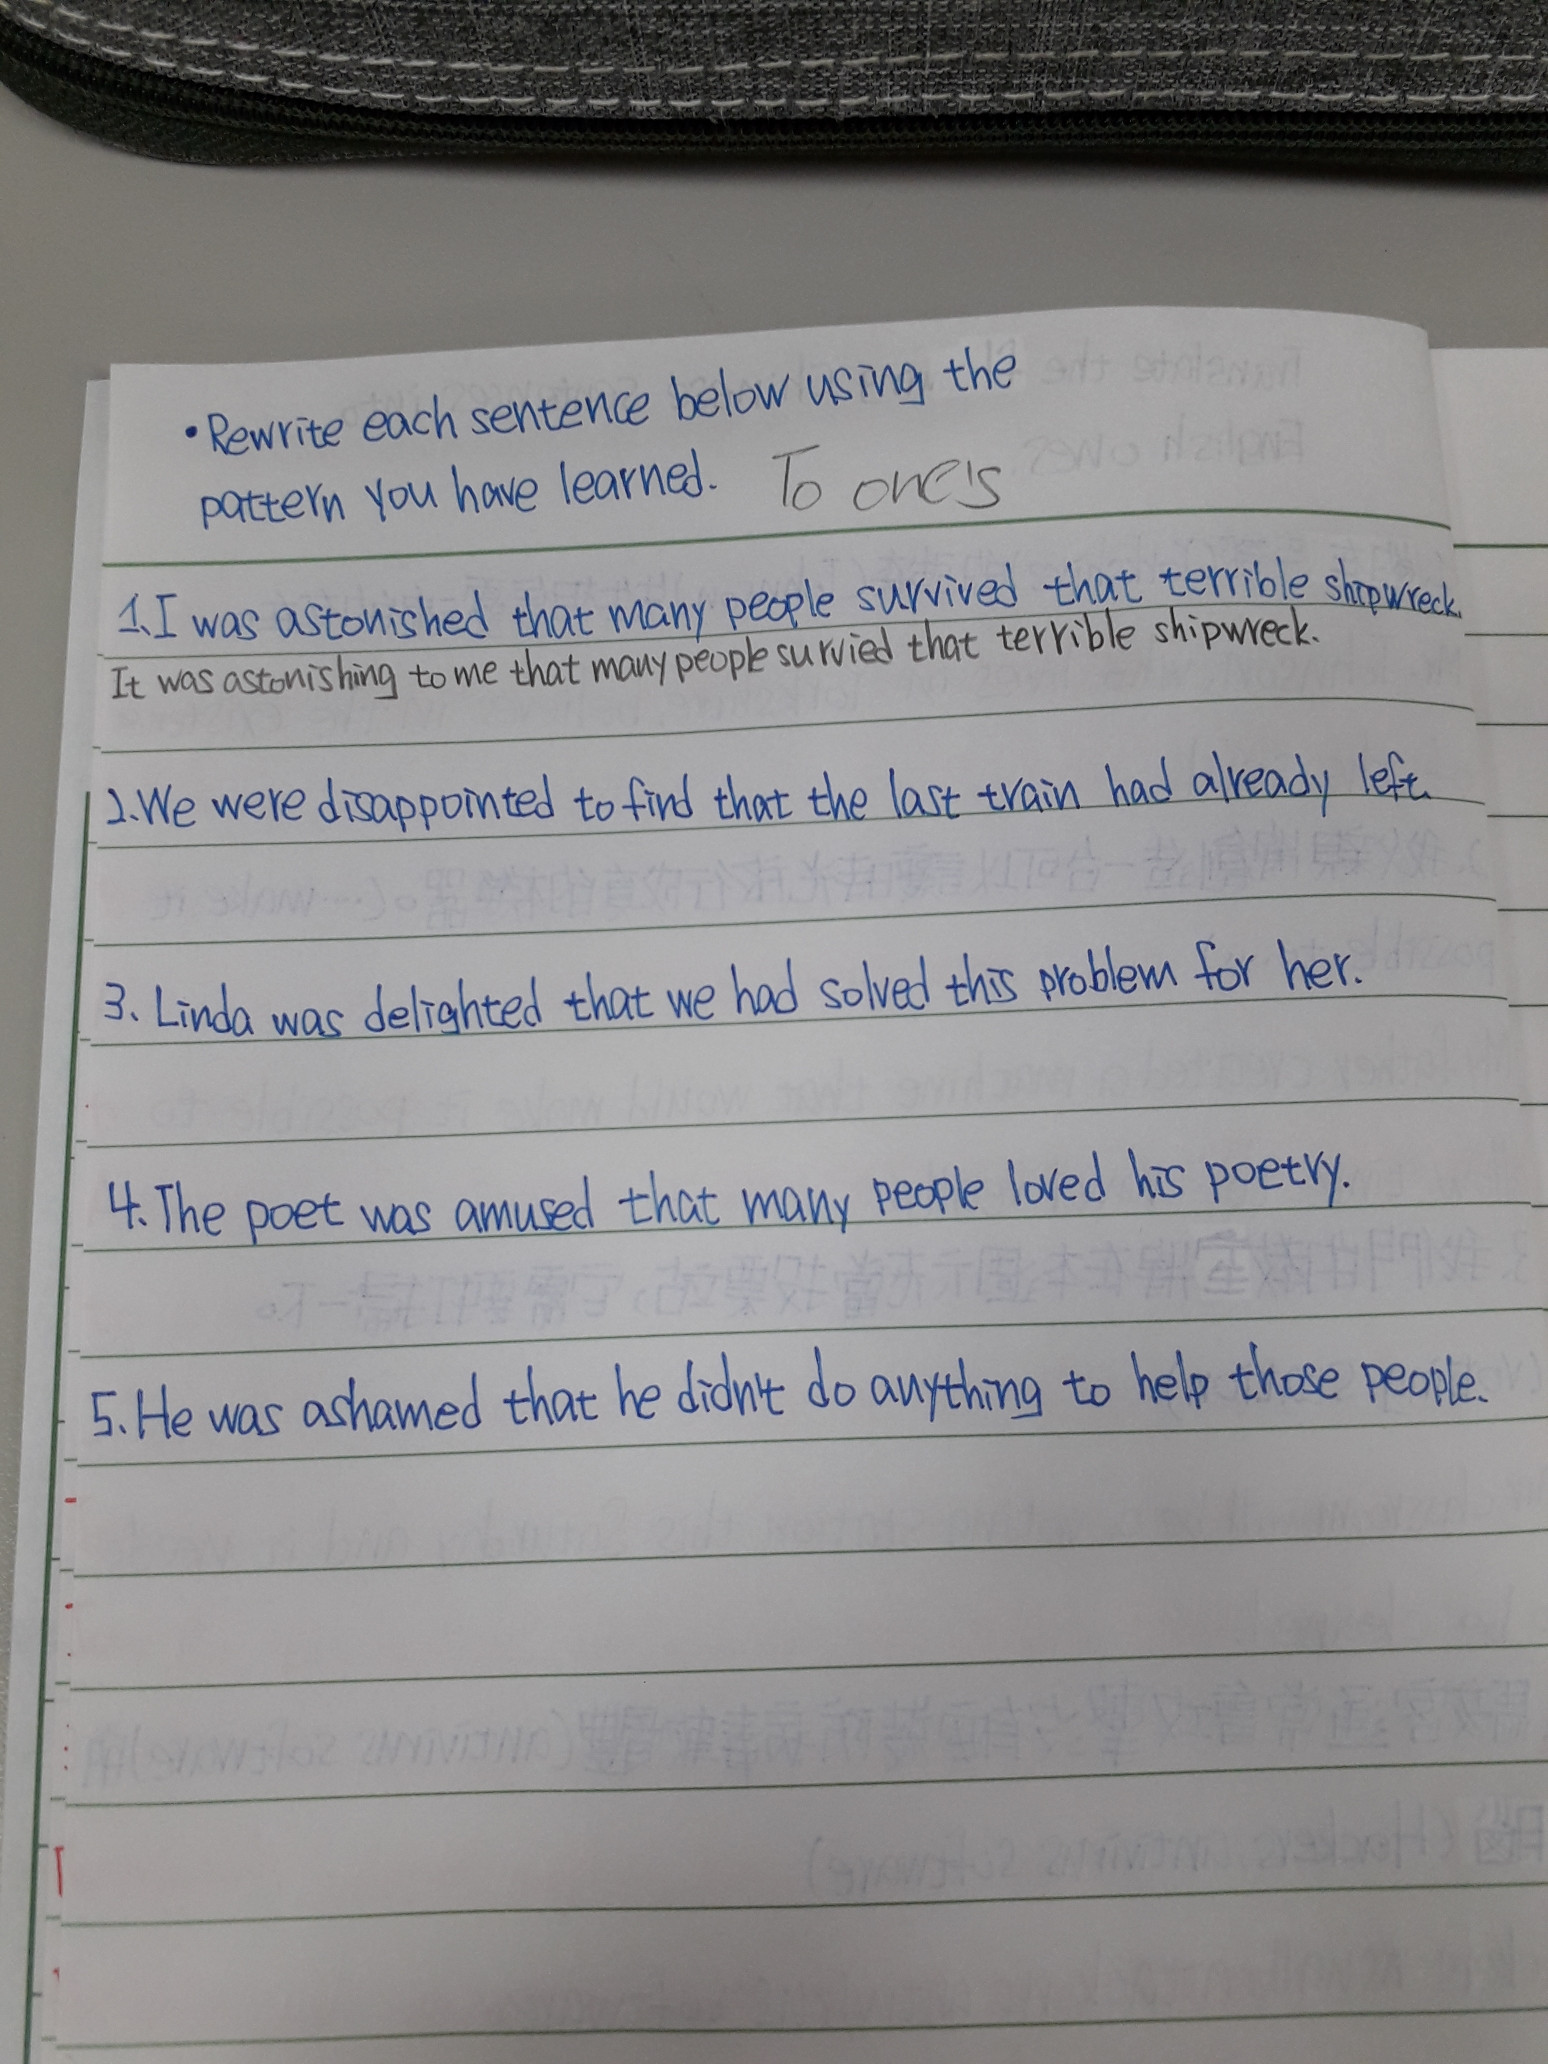 • Rewrite each sentence below using the
pattern you have learned. To one's
1. I was astonished that many people survived that terrible shipwreck.
It was astonishing to me that many people survied that terrible shipwreck.
2. We were disappointed to find that the last train had already left.
3. Linda was delighted that we had solved this problem for her.
4. The poet was amused that many people loved his poetry.
5. He was ashamed that he didn't do anything to help those people.